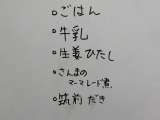 ◦ごはん
◦牛乳
◦生姜ひたし
◦さんまの
マーマレード煮
◦筑前だき